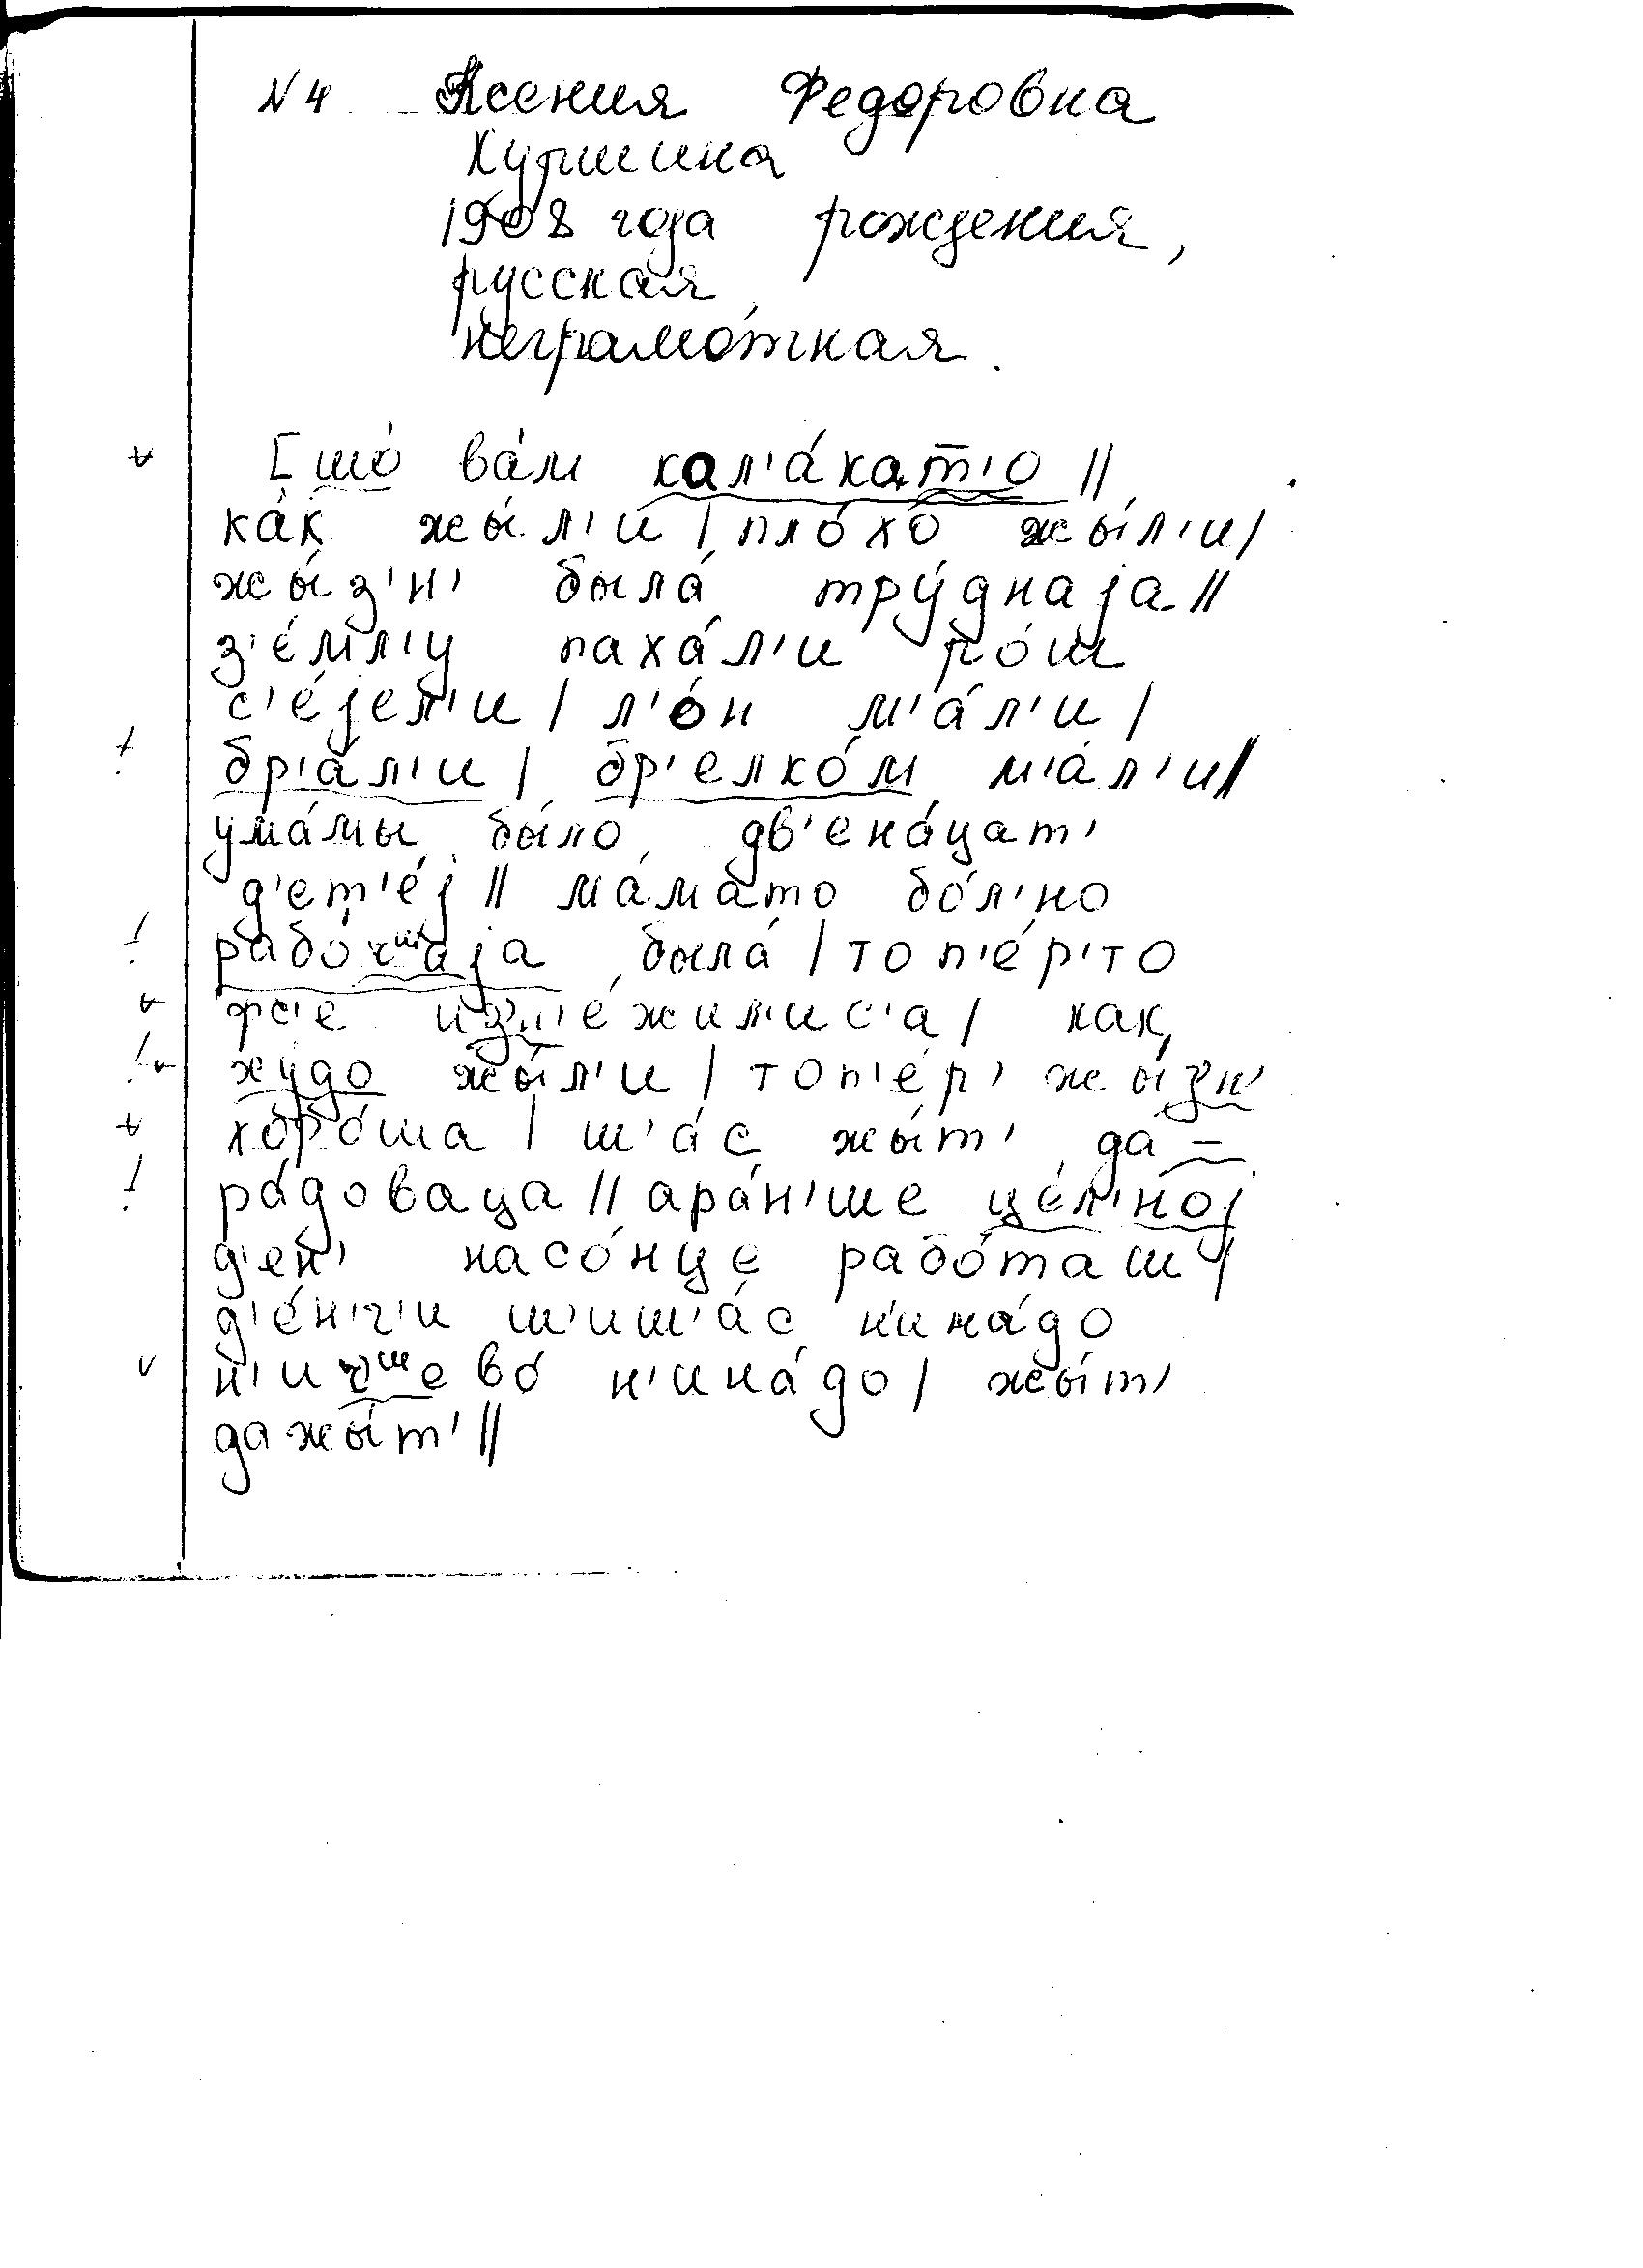 N 4 Ксения Федоровна
Хуршина
1908 года рождения,
русская
неграмо́тная.
[шо́ ва́м кал'а́кат'о ||
ка́к жы́л'и | пло́хо жы́л'и |
жы́з'н' была́ тру́днаjа ||
з'е́мл'у паха́л'и ро́ш
с'е́jел'и | л'о́н м'а́л'и |
бр'а́л'и | бр'елко́м м'а́л'и ||
ума́мы бы́ло дв'ена́цат'
д'ет'е́j || ма́мато бо́л'но
рабо́чшаjа была́ | топ'е́р'то
фс'е изн'е́жилис'а | как
ху́до жы́л'и | топ'е́р' жы́зн'
хоро́ша | ш'а́с жы́т' да –
ра́доваца || ара́н'ше це́л'ноj
д'ен' насо́нце рабо́таш |
д'е́н'г'и ш'иш'а́с н'ина́до
н'ичшево́ н'ина́до | жы́т'
дажы́т' ||